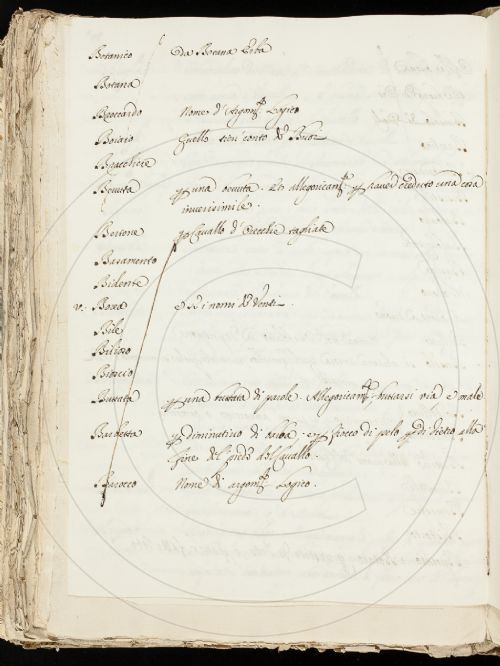 Botanico Da Botana Erba
Botana
Boccardo Nome d'Argom.to Logico
Boiaio Quello tien conto de Buoi
Braccheze
Bevuta p una bevuta. Et allegoricam.te p haver creduto una cosa
inverisimile.
Bertone p Cavallo d'Orecchie tagliate
Baramento
Bidente
v. Bora Od i nomi de Venti.
Bile
Bilioso
Bioscio
Buttata p una buttata di parole. Allegoricam.te buttarsi via, e male
Barbetta p diminutivo di barba. e p fiocco di pelo p di dietro alla
fine del piede del Cavallo.
Barocco Nome di argom.to Logico.